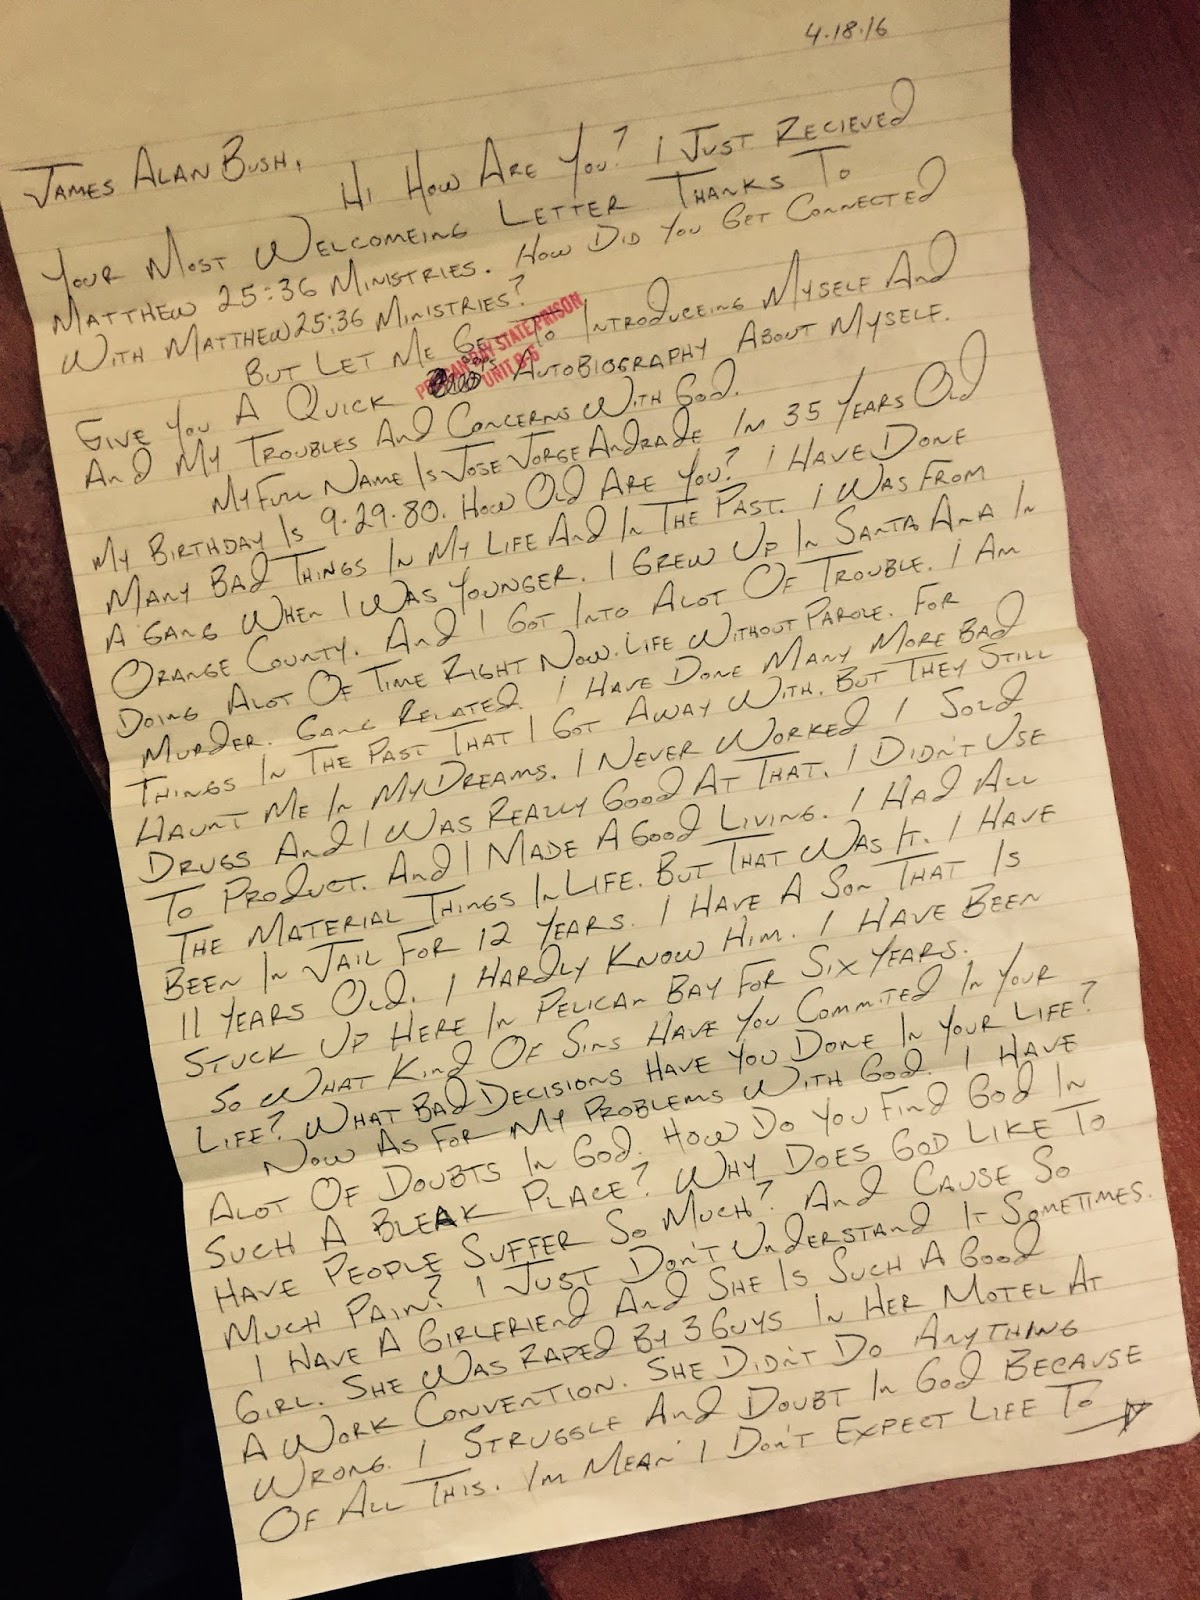 4.18.16
James Alan Bush,
Hi How Are You? I Just Recieved
Your Most Welcomeing Letter Thanks To
Matthew 25:36 Ministries. How Did You Get Connected
With Matthew 25:36 Ministries?
But Let Me Get To Introduceing Myself And
Give You A Quick AutoBiography About Myself.
PELICAN BAY STATE PRISON
UNIT B-6
And My Troubles And Concerns With God.
My Full Name Is Jose Jorge Andrade Im 35 Years Old
My Birthday Is 9.29.80. How Old Are You? I Have Done
Many Bad Things In My Life And In The Past. I Was From
A Gang When I Was Younger. I Grew Up In Santa Ana In
Orange County. And I Got Into Alot Of Trouble. I Am
Doing Alot Of Time Right Now. Life Without Parole. For
Murder. Gang Related. I Have Done Many More Bad
Things In The Past That I Got Away With. But They Still
Haunt Me In My Dreams. I Never Worked I Sold
Drugs And I Was Really Good At That. I Didn't Use
To Product. And I Made A Good Living. I Had All
The Material Things In Life. But That Was It. I Have
Been In Jail For 12 Years. I Have A Son That Is
11 Years Old. I Hardly Know Him. I Have Been
Stuck Up Here In Pelican Bay For Six Years.
So What Kind Of Sins Have You Commited In Your
Life? What Bad Decisions Have You Done In Your Life?
Now As For My Problems With God. I Have
Alot Of Doubts In God. How Do You Find God In
Such A Bleak Place? Why Does God Like To
Have People Suffer So Much? And Cause So
Much Pain? I Just Don't Understand It Sometimes.
I Have A Girlfriend And She Is Such A Good
Girl. She Was Raped By 3 Guys In Her Motel At
A Work Convention. She Didn't Do Anything
Wrong. I Struggle And Doubt In God Because
Of All This. I'm Mean I Don't Expect Life To